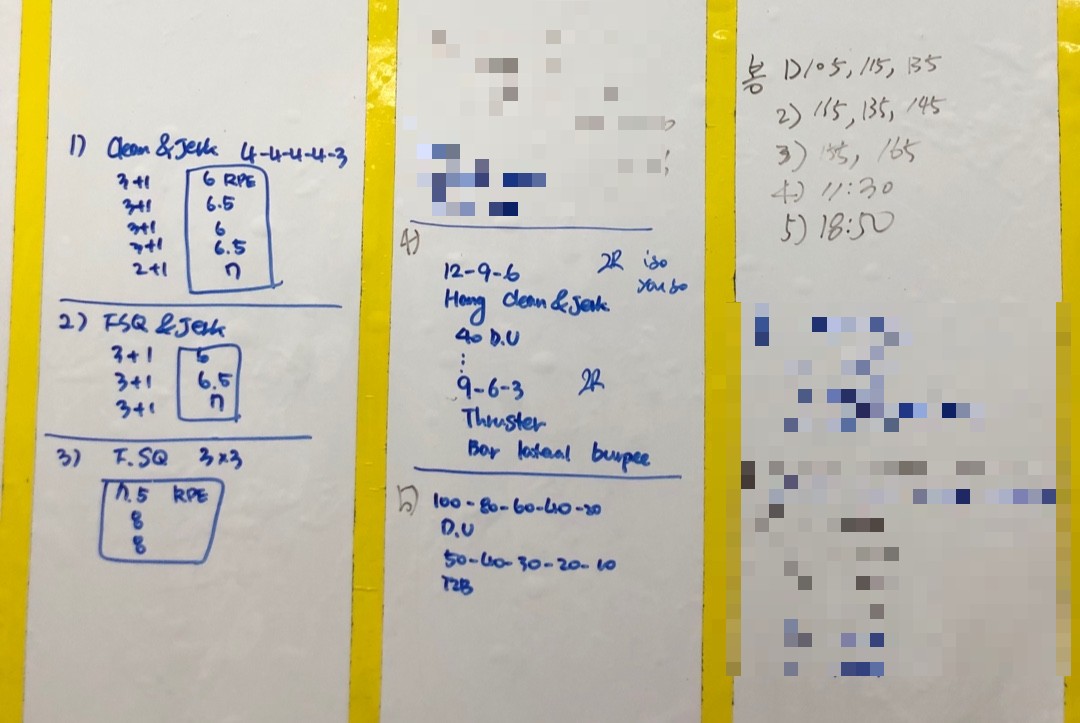 1) Clean & Jerk 4-4-4-4-3
3+1 6 RPE
3+1 6.5
3+1 6
3+1 6.5
2+1 7
2) FSQ & Jerk
3+1 6
3+1 6.5
3+1 7
3) F.SQ 3x3
7.5 RPE
8
8
4)
12-9-6 2R
Hang Clean & Jerk
40 D.U
⋮
9-6-3 2R
Thruster
Bar lateral burpee
5) 100-80-60-40-20
D.U
50-40-30-20-10
T2B
봉 1) 105, 115, 135
2) 115, 135, 145
3) 155, 165
4) 11:30
5) 18:50